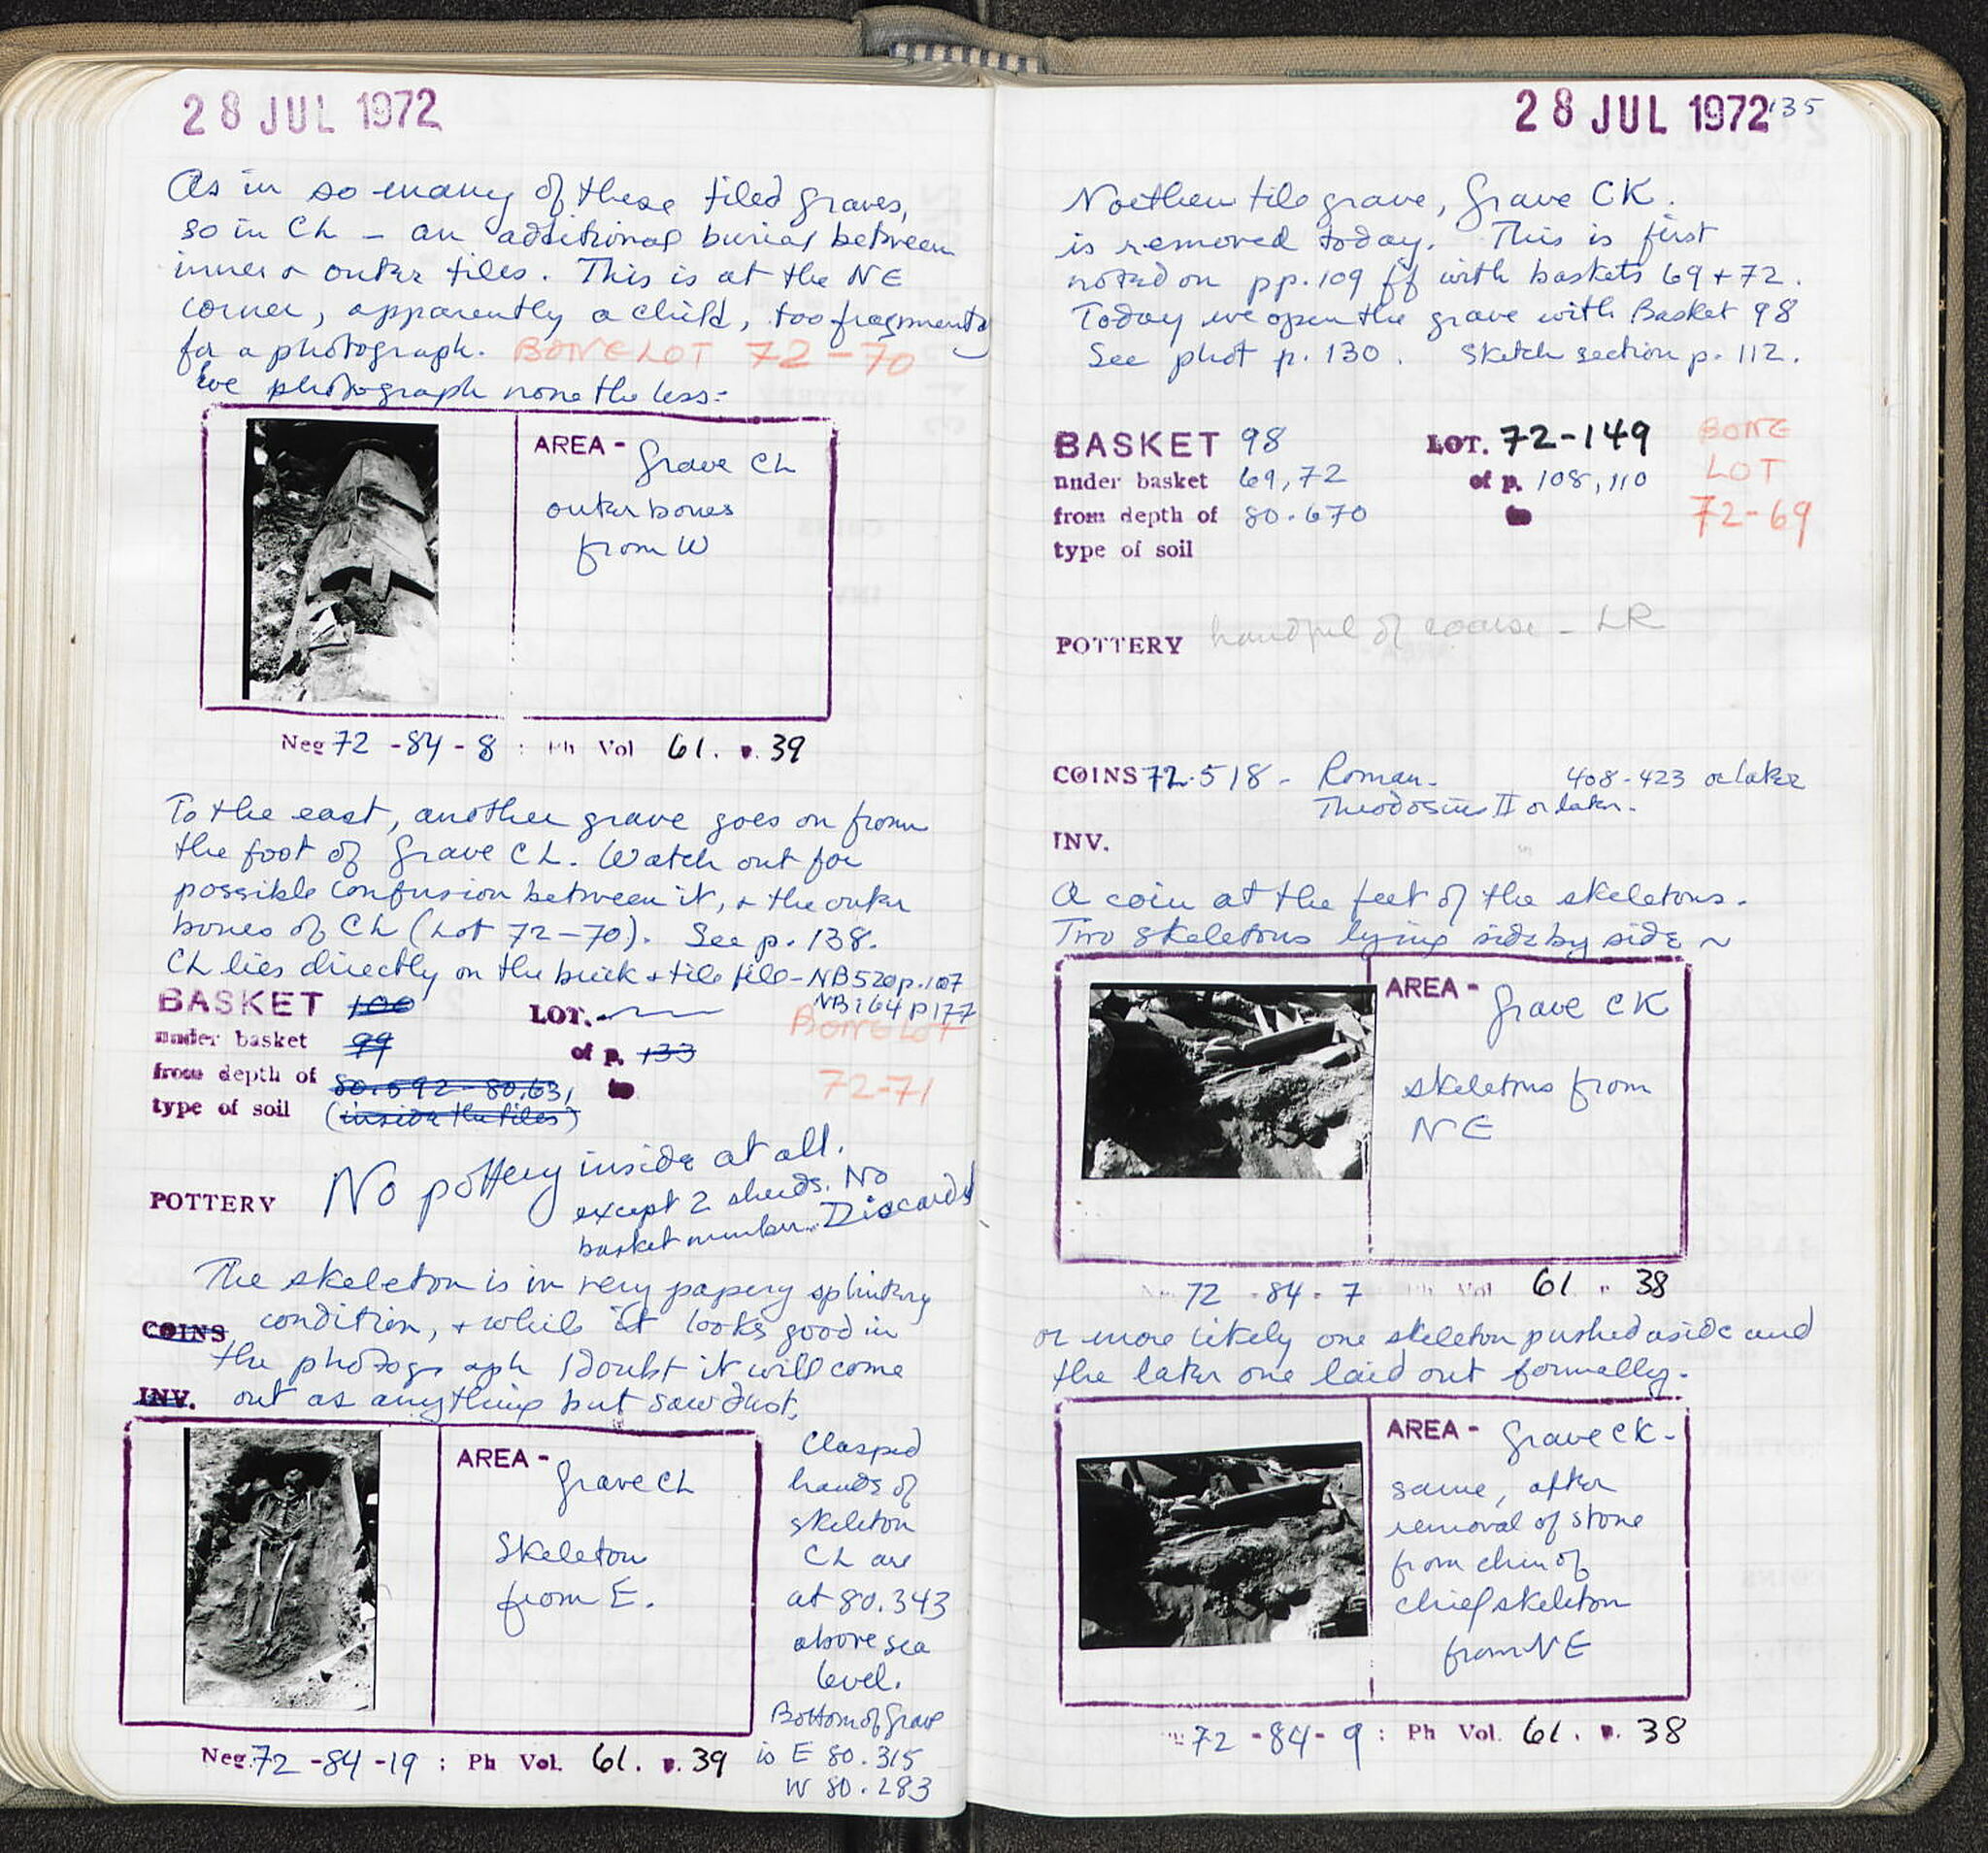 28 JUL 1972
As in so many of these tiled graves,
so in CL - an additional burial between
inner & outer tiles. This is at the NE
corner, apparently a child, too fragmentary
for a photograph. BONE LOT 72-70
We photograph none the less:
AREA - Grave CL
outer bones
from W
Neg 72 -84 - 8 : Ph Vol 61. p. 39
To the east, another grave goes on from
the foot of Grave CL. Watch out for
possible confusion between it, & the outer
bones of CL (Lot 72-70). See p. 138.
CL lies directly on the brick & tile fill - NB520 p.107
NB164 p177
BASKET 100 LOT. BONE LOT
under basket 99 of p. 133
from depth of 80.592 - 80.631 72-71
type of soil (inside the tiles)
No pottery inside at all.
POTTERY except 2 sherds. No
basket number. Discard
The skeleton is in very papery splintery
COINS condition, & while it looks good in
the photograph I doubt it will come
INV. out as anything but sawdust.
AREA - Grave CL
Skeleton
from E.
Clasped
hands of
skeleton
CL are
at 80.343
above sea
level.
Bottom of Grave
is E 80.315
W 80.283
Neg. 72 -84 -19 : Ph Vol. 61. p. 39
28 JUL 1972 135
Northern tile grave, Grave CK.
is removed today. This is first
noted on pp. 109 ff with baskets 69 + 72.
Today we open the grave with Basket 98
See phot p. 130. Sketch section p. 112.
BASKET 98 LOT. 72-149 BONE
under basket 69, 72 of p. 108, 110 LOT
from depth of 80.670 72-69
type of soil
POTTERY handful of coarse - LR
COINS 72-518 - Roman - 408-423 or later
Theodosius II or later.
INV.
A coin at the feet of the skeletons.
Two skeletons lying side by side ~
AREA - Grave CK
skeletons from
NE
72 -84 - 7 Ph Vol 61 p 38
or more likely one skeleton pushed aside and
the later one laid out formally.
AREA - Grave CK -
same, after
removal of stone
from chin of
chief skeleton
from NE
72 -84 - 9 : Ph Vol. 61. p. 38